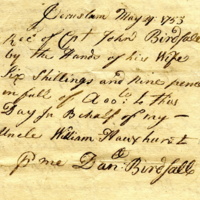 Jerusalem May 4 1753
Rec.d of Cpt John Birdsall
by the Hands of his Wife
Six Shillings and Nine pence
in full of Acco.t to this
Day In Behalf of my
Uncle William Hauxhurst
P me Dan.l Birdsall